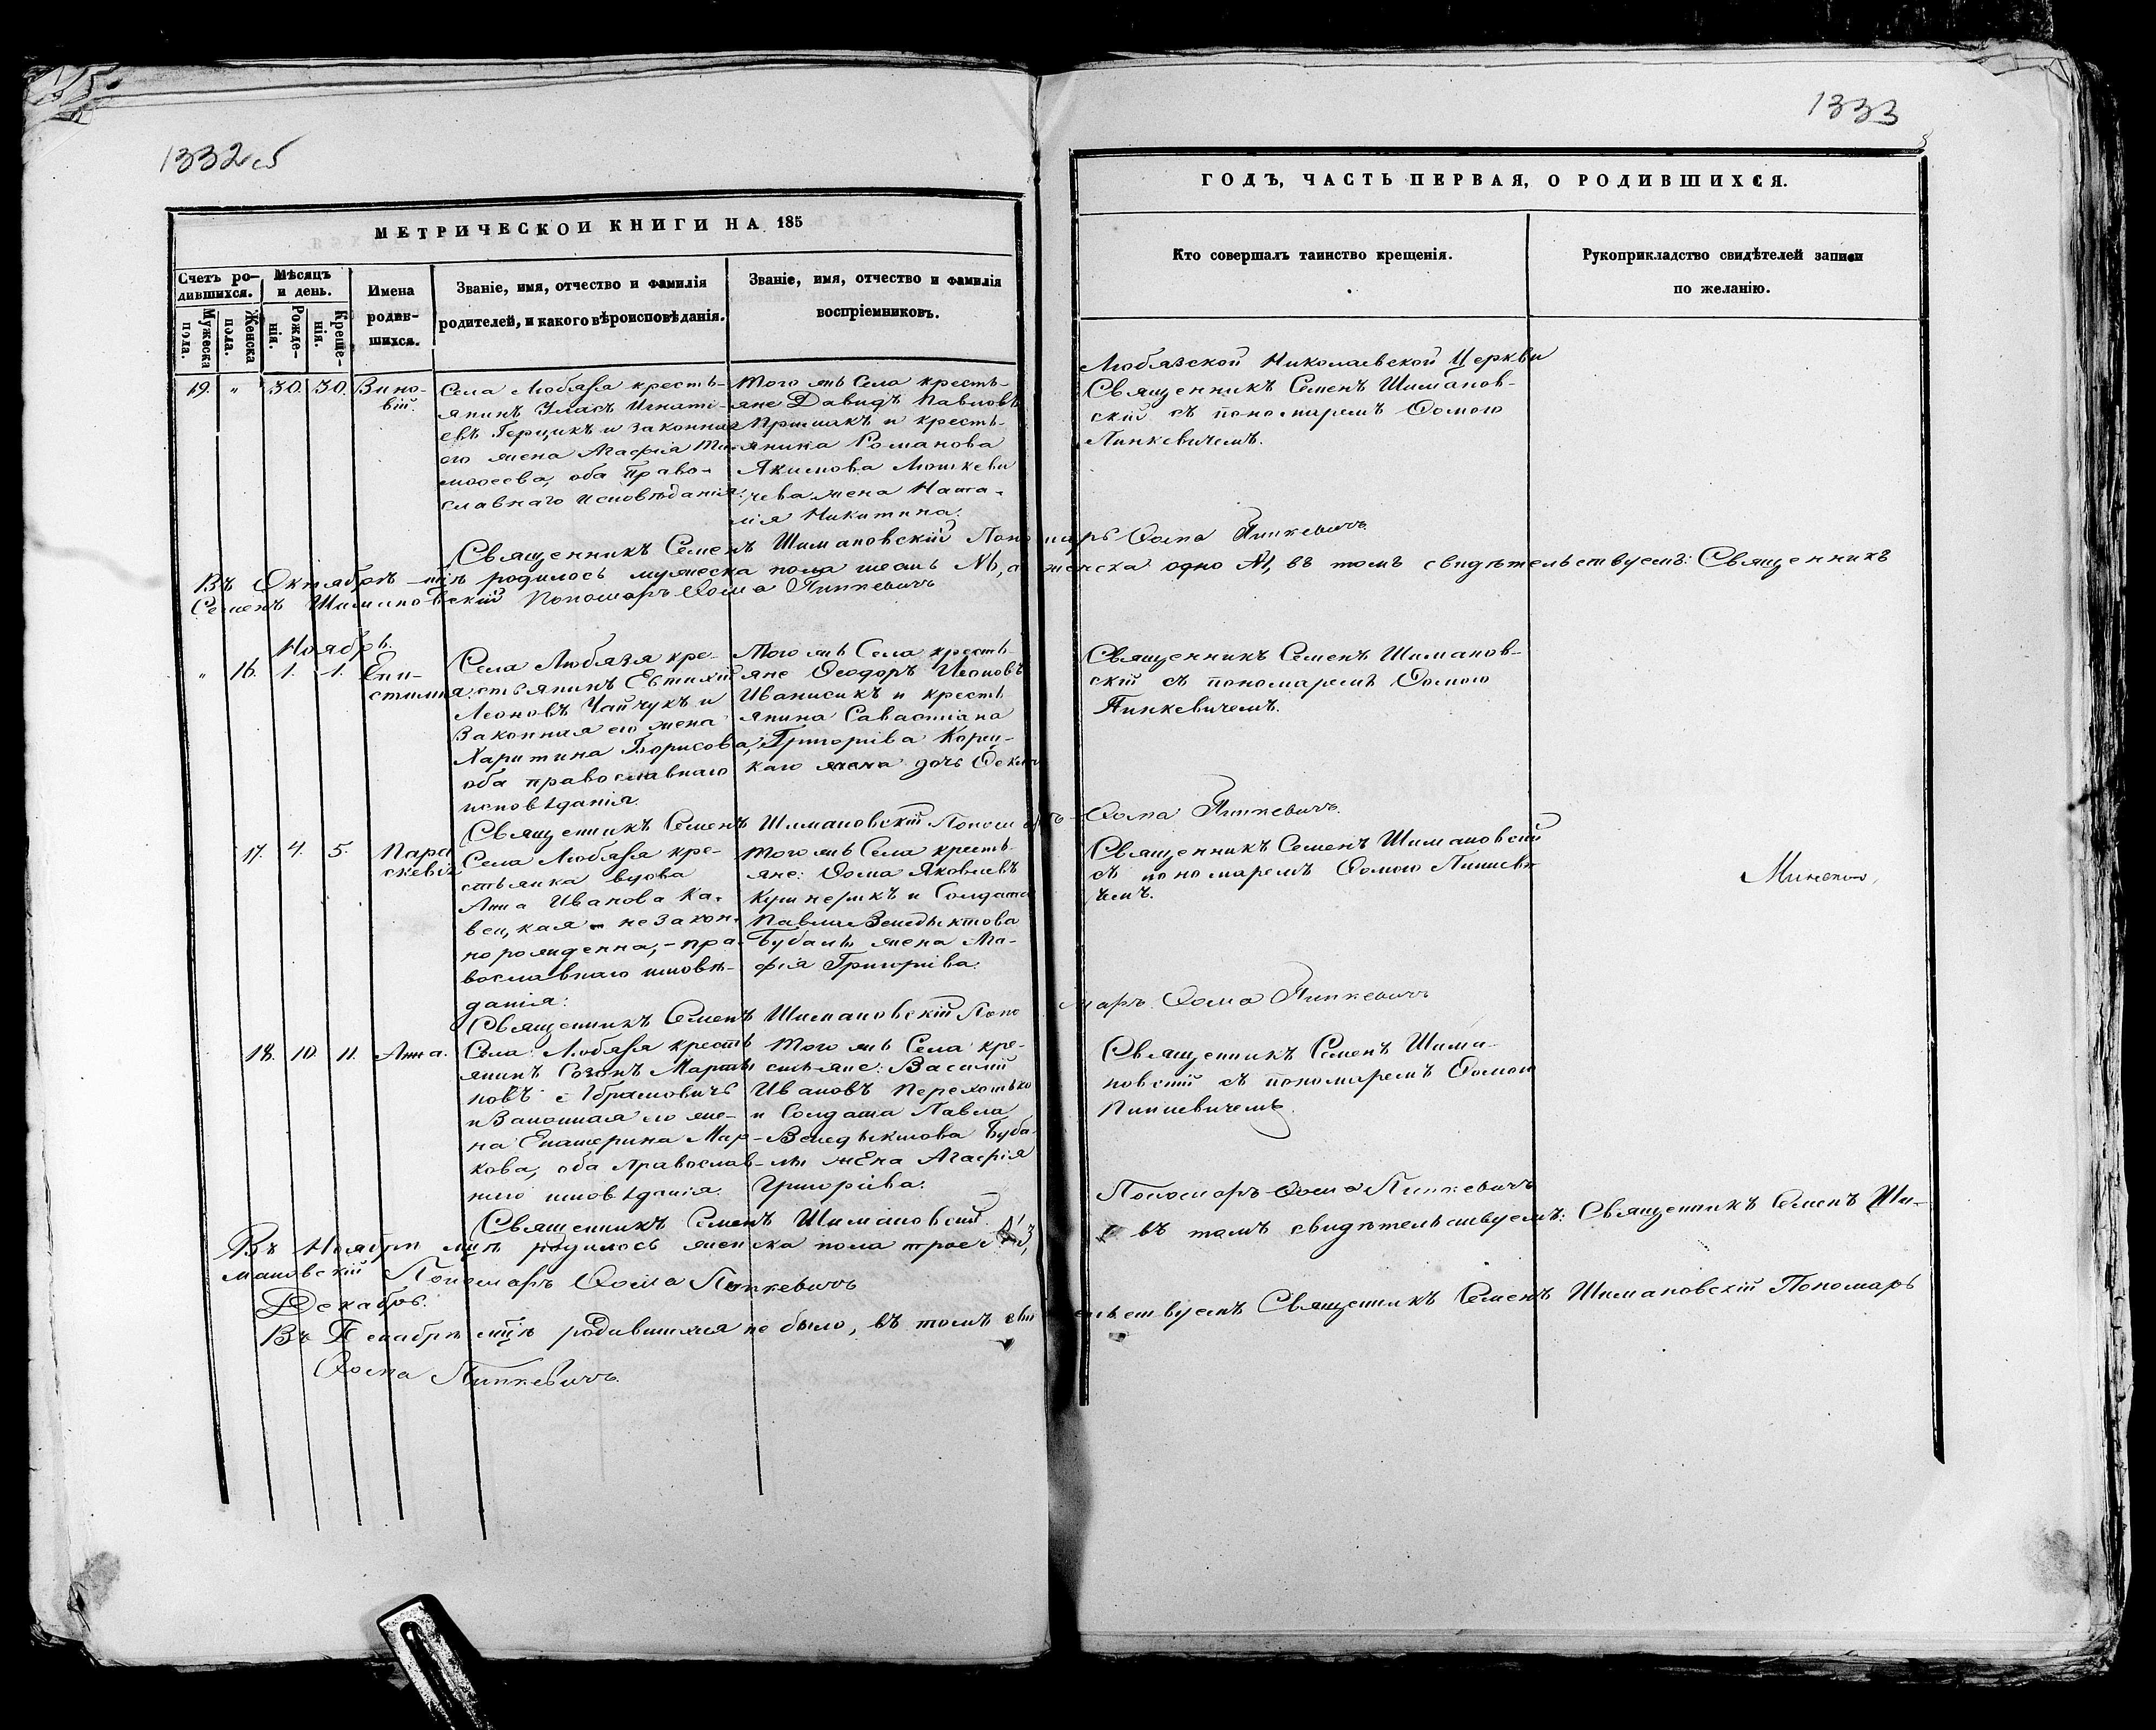 1332об
1333
МЕТРИЧЕСКОЙ КНИГИ НА 185
ГОДЪ, ЧАСТЬ ПЕРВАЯ, О РОДИВШИХСЯ.
Счетъ ро-
дившихся.
Мужеска
пола.
Женска
пола.
Мѣсяцъ
и день.
Рожде-
нія.
Креще-
нія.
Имена
родив-
шихся.
Званіе, имя, отчество и фамилія
родителей, и какого вѣроисповѣданія.
Званіе, имя, отчество и фамилія
воспріемниковъ.
Кто совершалъ таинство крещенія.
Рукоприкладство свидѣтелей записи
по желанію.
19. " 30. 30. Зино-
вій.
Села Любязя кресть-
янинъ Уласъ Игнаті-
евъ Герцикъ и законная
его жена Агафія Ти-
моѳеева, оба Право-
славнаго исповѣданія.
Того жъ Села кресть-
яне Давидъ Павловъ
и кресть-
янина Романова
Якимова Мошкеви
чева жена Ната-
лія Никитина.
Любязской Николаевской Церкви
Священникъ Семенъ Шиманов-
скій съ пономаремъ Ѳомою
Пинкевичемъ.
Священникъ Семенъ Шимановскій Пономарь Ѳома Пинкевичъ
Въ Октябрѣ м-цѣ родилось мужеска пола шесть а женска одно №1, въ томъ свидѣтельствуемъ: Священникъ
Семенъ Шимановскій Пономарь Ѳома Пинкевичъ
Ноябрь.
" 16. 1. 1. Епи-
стимія
Села Любязя кре-
стьянинъ Евтихій
Леоновъ Чайчукъ и
Законная его жена
Харитина Борисова,
оба православнаго
исповѣданія.
Того жъ Села кресть-
яне Ѳеодоръ
Иванисикъ и кресть
янина Савастіана
Григоріева Корец-
каго жена дочь
Священникъ Семенъ Шиманов-
скій съ пономаремъ Ѳомою
Пинкевичемъ.
Священникъ Семенъ Шимановскій Пономарь Ѳома Пинкевичъ.
17. 4. 5. Пара
скевія
Села Любязя кре-
стьянка вдова
Анна Иванова Ка-
вецкая незакон-
норожденна, - пра-
вославнаго исповѣ-
данія:
Того жъ Села кресть-
яне: Ѳома Яковлевъ
Кушнерикъ и Солдата
Павла Венедыктова
Бубалы жена Ага-
фія Григоріева.
Священникъ Семенъ Шимановскій
съ пономаремъ Ѳомою Пинкеви
чемъ.
Священникъ Семенъ Шимановскій Пономарь Ѳома Пинкевичъ
18. 10. 11. Анна.
Села Любязя кресть
янинъ Созонъ Марты
новъ Абрамовичъ
и Законная его же-
на Екатерина Мар-
кова, оба Православ-
наго исповѣданія.
Того жъ Села кре-
стьяне: Василій
Ивановъ Перехотько
и Солдата Павла
Венедыктова Буба-
лы жена Агафія
Григоріева.
Священникъ Семенъ Шима-
новскій съ пономаремъ Ѳомою
Пинкевичемъ.
Священникъ Семенъ Шимановскій. Пономарь Ѳома Пинкевичъ
Въ Ноябрѣ м-цѣ родилось женска пола трое №3, въ томъ свидѣтельствуемъ: Священникъ Семенъ Ши-
мановскій Пономарь Ѳома Пинкевичъ
Декабрь.
Въ Декабрѣ м-цѣ родившихся не было, въ томъ свидѣтельствуемъ Священникъ Семенъ Шимановскій Пономарь
Ѳома Пинкевичъ.